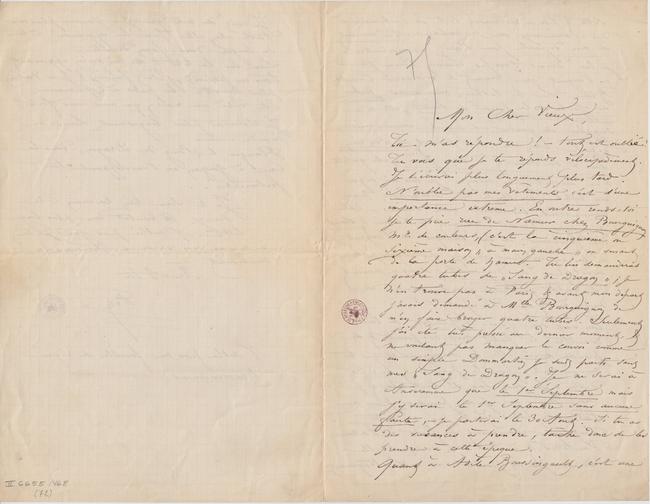 Mon Cher Vieux,
Tu m'as répondre ! — tout est oublié !
Tu vois que je te réponds vélocipédiment.
Je t'écrirai plus longuement plus tard.
N'oublie pas mes vêtements c'est d'une
importance extrême. En outre rends-toi
je te prie rue de Namur chez Bourguignon
md. de couleurs, (c'est la cinquième ou
sixième maison, à main gauche, en venant
de la porte de Namur. Tu lui demanderas
quatre tubes de "Sang de Dragon",
n'en trouve pas à Paris, & avant mon départ
j'avais demandé à Bourguignon de
m'en faire broyer quatre tubes. Seulement
j'ai été pressé au dernier moment, &
ne voulant pas manquer le convoi comme
un simple Dommartin, je suis parti sans
mes "Sang de Dragon". Je ne serai à
Anseremme que le 1er Septembre mais
j'y serai le 1er Septembre sans aucune
faute, je partirai le 30 Août. Si tu as
des vacances à prendre, tâche donc de les
prendre à cette époque.
Quant à c'est une
II 6655/468
(72)